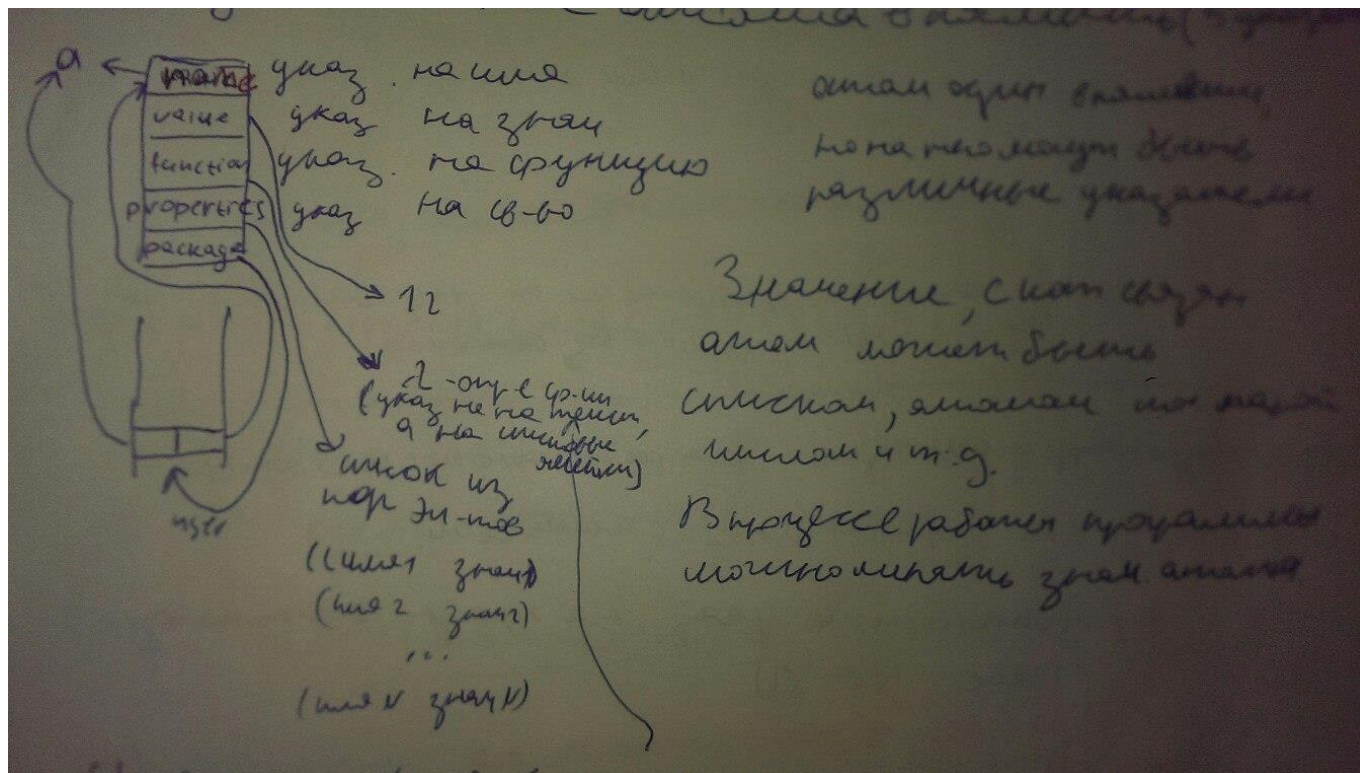 в памяти (5 указ
a
name указ. на имя
value указ на знач
function указ. на функцию
properties указ на св-во
package
12
λ-опр-е ф-ии
(указ не на текст,
а на списковые
ячейки)
список из
пар эл-тов
((имя1 знач1)
(имя2 знач2)
...
(имяN значN)
user
атом один в памяти,
но на него могут быть
различные указатели
Значение, с кот связан
атом может быть
списком, атомом
числом и т.д.
В процессе работы программы
можно менять знач. атома